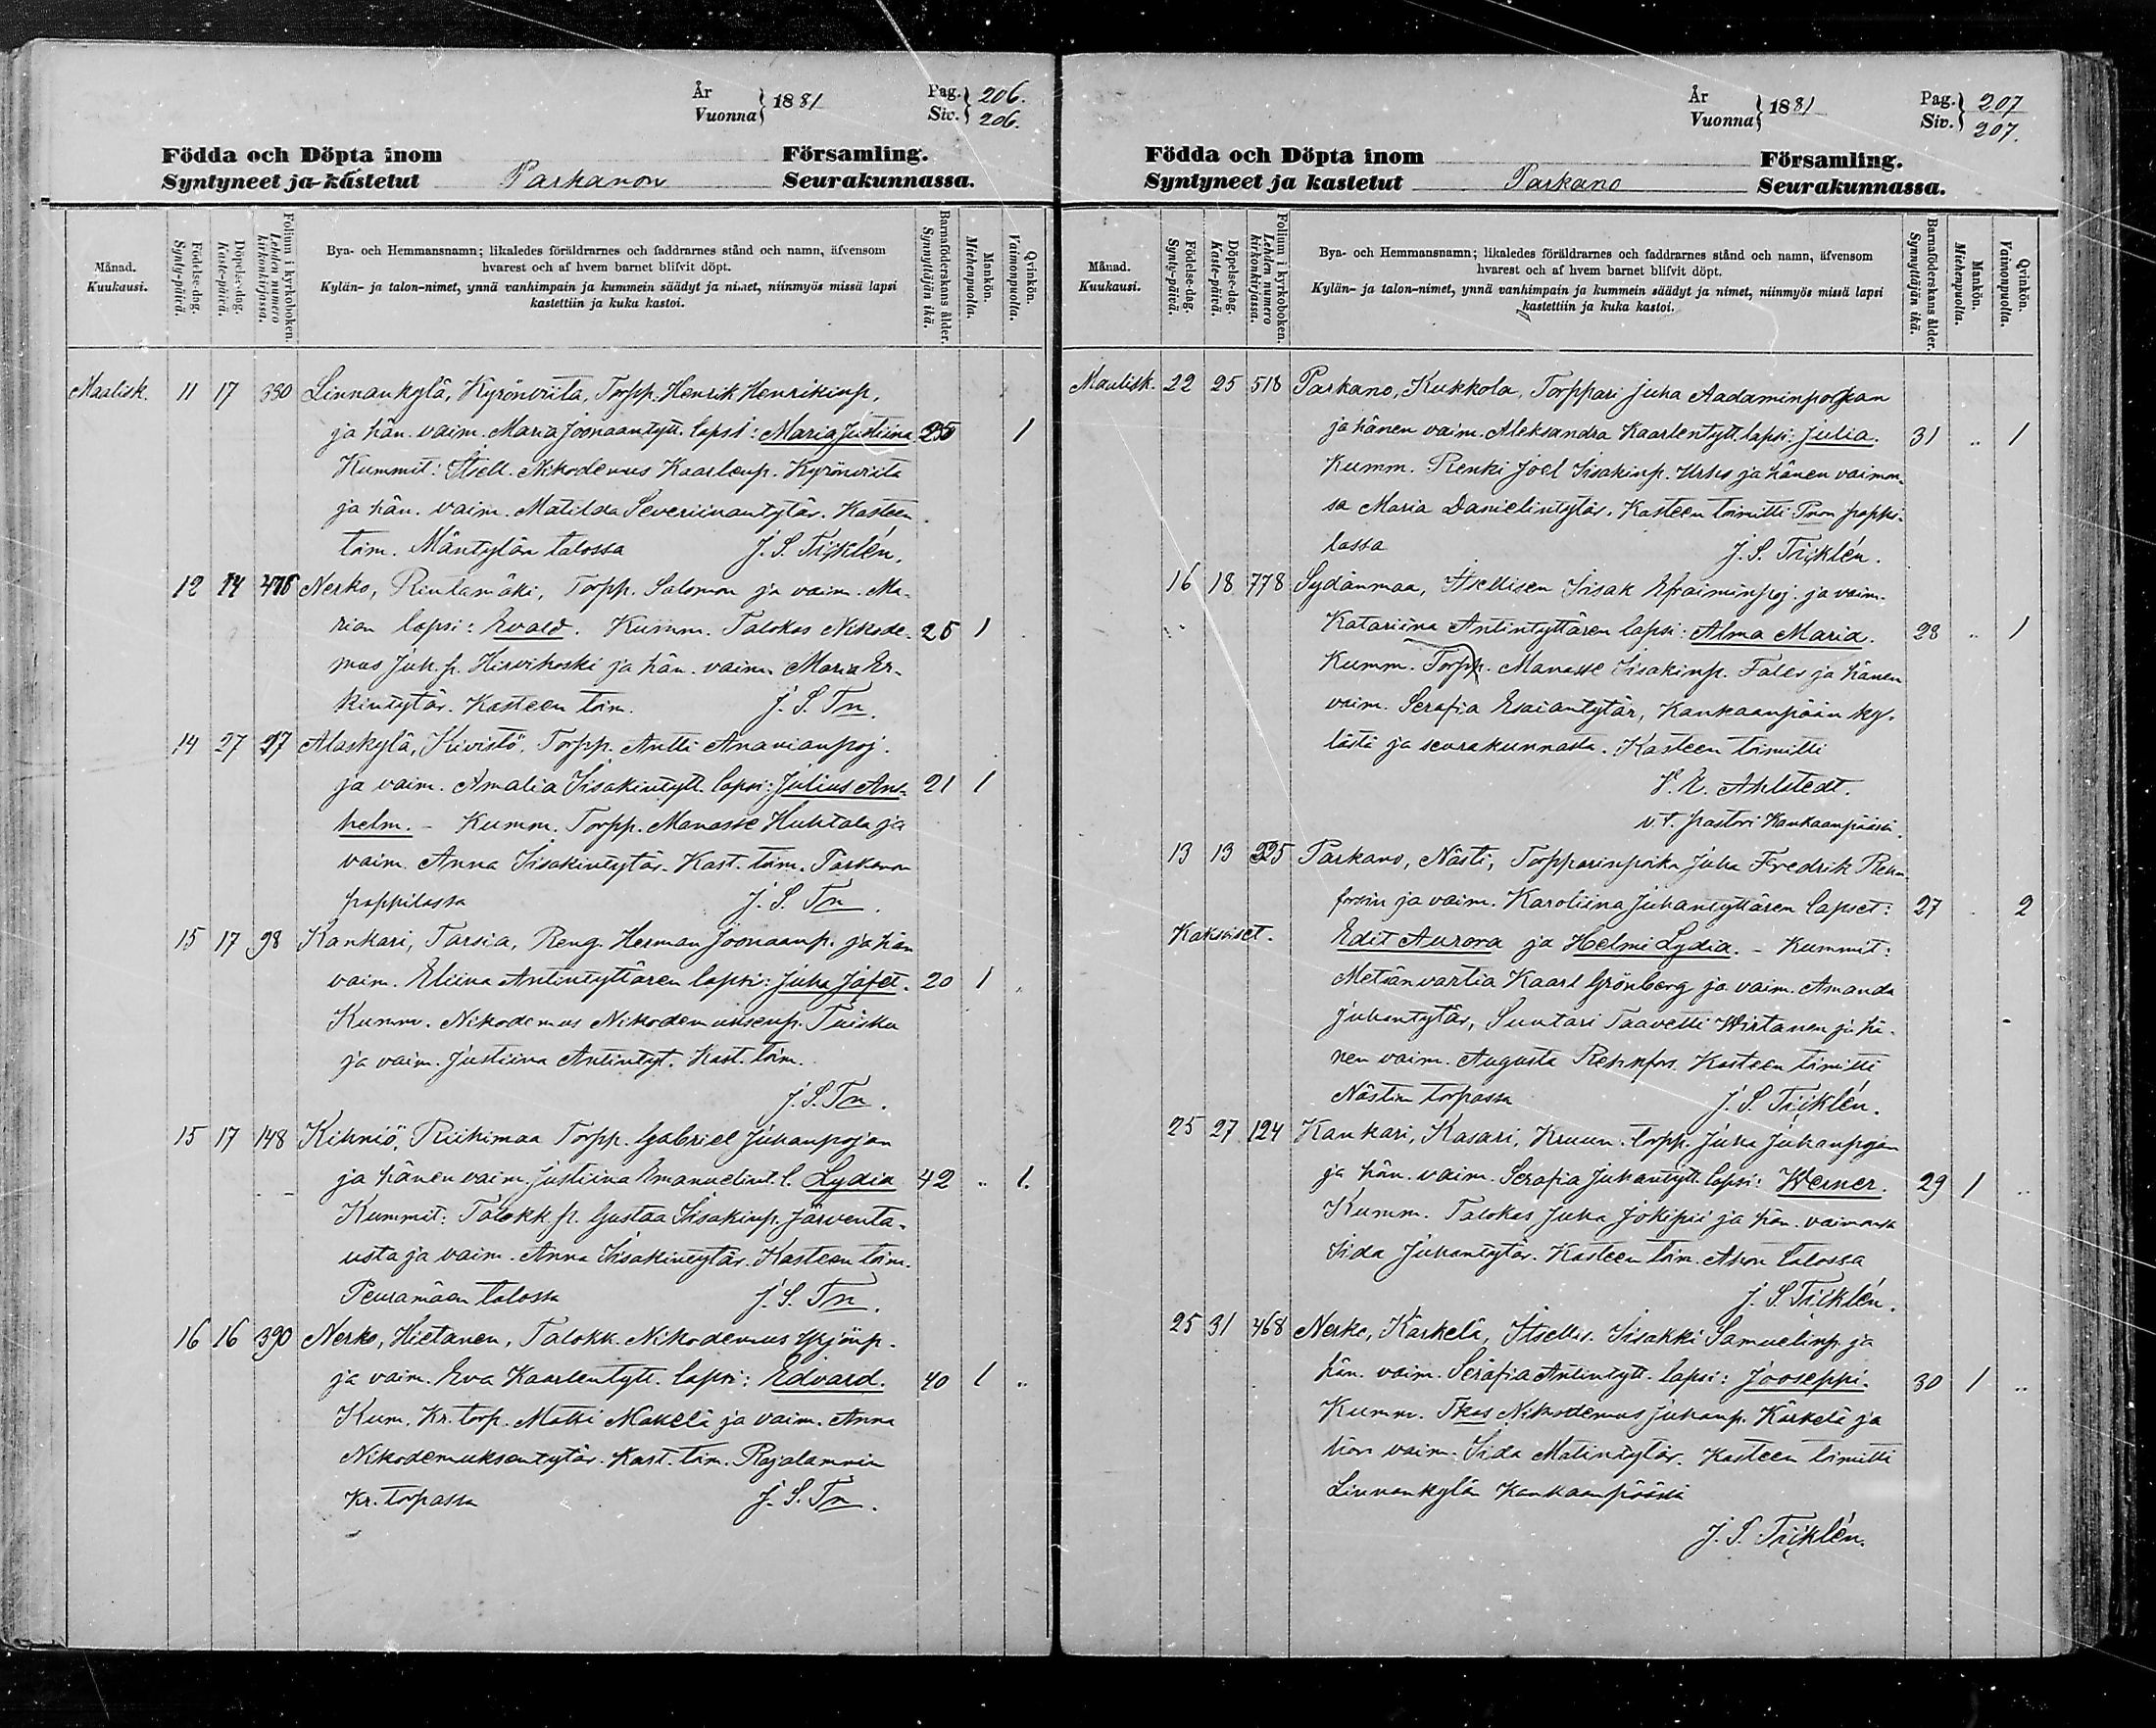 År
Vuonna } 1881
Pag.
Siv. } 206.
206.
Födda och Döpta inom Församling.
Syntyneet ja kastetut Parkanon Seurakunnassa.
Månad.
Kuukausi.
Födelse-dag.
Synty-päivä.
Döpelse-dag.
Kaste-päivä.
Folium i kyrkoboken.
Lehden numero kirkonkirjassa.
Bya- och Hemmansnamn; likaledes föräldrarnes och faddrarnes stånd och namn, äfvensom
hvarest och af hvem barnet blifvit döpt.
Kylän- ja talon-nimet, ynnä vanhimpain ja kummein säädyt ja nimet, niinmyös missä lapsi
kastettiin ja kuka kastoi.
Barnaföderskans ålder.
Synnyttäjän ikä.
Mankön.
Miehenpuolia.
Qvinkön.
Vaimonpuolia.
Maalisk. 11 17 330 Linnankylä, Kyrönviita, Torpp. Henrik Henrikinp.
ja hän. vaim. Maria Joonaantytt. lapsi: Maria Justiina 25 1
Kummit: Itsell. Nikodemus Kaarlenp. Kyrönviita
ja hän. vaim. Matilda Severiinantytär. Kasteen
toim. Mäntylän talossa J. S. Träskelin.
12 14 Nerko, Rintamäki, Torpp. Salomon ja vaim. Ma-
rian lapsi: Evald. Kumm. Talokas Nikode- 25 1
mus Juh. p. Hirvikoski ja hän. vaim. Maria Er-
kintytär. Kasteen toim. J. S. Tn.
14 27 27 Alaskylä, Kivistö, Torpp. Antti Ananianpoj.
ja vaim. Amalia Iisakintytt. lapsi: Julius Ans- 21 1
helm. - Kumm. Torpp. Manasse Huhtala ja
vaim. Anna Iisakintytär. Kast. toim. Parkanon
pappilassa J. S. Tn.
15 17 98 Kankari, Tarsia, Reng. Herman Joonaanp. ja hän
vaim. Eliina Antintyttären lapsi: Juha Jafet. 20 1
Kumm. Nikodemus Nikodemuksenp. Tuisku
ja vaim. Justiina Antintyt. Kast. toim.
J. S. Tn.
15 17 148 Kihniö, Riihimaa Torpp. Gabriel Juhanpojan
ja hänen vaim. Justiina Emanuelint. l. Lydia 42 " 1.
Kummit: Talokk. p. Gustaa Iisakinp. Järventa-
usta ja vaim. Anna Iisakintytär. Kasteen toim.
Peuramäen talossa J. S. Tn.
16 16 390 Nerko, Hietanen, Talokk. Nikodemus Yrjönp.
ja vaim. Eva Kaarlentytt. lapsi: Edvard. 40 1 "
Kum. Kr. torp. Matti Mäkelä ja vaim. Anna
Nikodemuksentytär. Kast. toim. Rajalammin
Kr. torpassa J. S. Tn.
År
Vuonna } 1881
Pag.
Siv. } 207
207.
Födda och Döpta inom Församling.
Syntyneet ja kastetut Parkano Seurakunnassa.
Månad.
Kuukausi.
Födelse-dag.
Synty-päivä.
Döpelse-dag.
Kaste-päivä.
Folium i kyrkoboken.
Lehden numero kirkonkirjassa.
Bya- och Hemmansnamn; likaledes föräldrarnes och faddrarnes stånd och namn, äfvensom
hvarest och af hvem barnet blifvit döpt.
Kylän- ja talon-nimet, ynnä vanhimpain ja kummein säädyt ja nimet, niinmyös missä lapsi
kastettiin ja kuka kastoi.
Barnaföderskans ålder.
Synnyttäjän ikä.
Mankön.
Miehenpuolia.
Qvinkön.
Vaimonpuolia.
Maalisk. 22 25 518 Parkano, Kukkola, Torppari Juha Aadaminpojan
ja hänen vaim. Aleksandra Kaarlentytt. lapsi: Julia. 31 " 1
Kumm. Renki Joel Iisakinp. ja hänen vaimon-
sa Maria Danielintytär. Kasteen toimitti Pnon pappi-
lassa
16 18 778 Sydänmaa, Itsellisen Iisak Efraiminpoj. ja vaim.
Katariina Antintyttären lapsi: Alma Maria. 28 " 1
Kumm. Torpp. Manasse Iisakinp. ja hänen
vaim. Serafia Esaiantytär, Kankaanpään ky-
lästä ja seurakunnasta. Kasteen toimitti
Ahlstedt.
v.t. pastori Kankaanpäässä.
13 13 225 Parkano, Nästi, Torpparinpoika Juha Fredrik Rehn
forsin ja vaim. Karoliina Juhantyttären lapset: 27 2
Kaksoiset. Edit Aurora ja Helmi Lydia. - Kummit:
Metsänvartia Kaarl Grönberg ja vaim. Amanda
Juhantytär, Suutari Taavetti Wirtanen ja hä-
nen vaim. Augusta Rehnfors. Kasteen toimitti
Nästin torpassa
25 27 124 Kankari, Kasari, Kruun. torpp. Juha Juhanpojan
ja hän. vaim. Serafia Juhantytt. lapsi: Werner. 29 1 "
Kumm. Talokas Juha Jokipii ja hän. vaimonsa
Iida Juhantytär. Kasteen toim. Ahon talossa
25 31 468 Nerko, Kärkelä, Itsellis. Iisakki Samuelinp. ja
hän. vaim. Serafia Antintytt. lapsi: Jooseppi. 30 1 "
Kumm. Tkas Nikodemus Juhanp. Kärkelä ja
hän vaim. Iida Matintytär. Kasteen toimitti
Linnankylän Kankaanpäässä